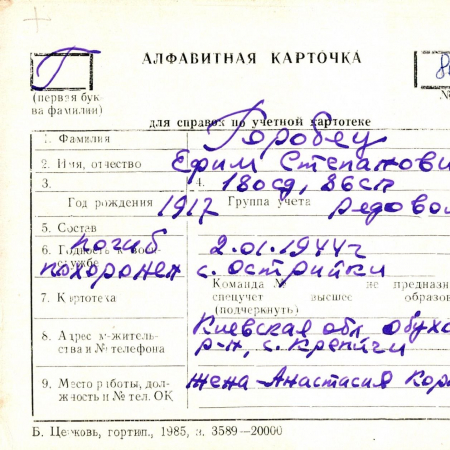 АЛФАВИТНАЯ КАРТОЧКА
Г
(первая бук-
ва фамилии)
для справок по учетной картотеке
1. Фамилия Горобец
2. Имя, отчество Ефим Степанови
3. 4. 180сд, 86сп
Год рождения 1917 Группа учета рядовой
5. Состав
6. Годность к воен. погиб 2.01.1944г
службе похоронен с. Острийки
Команда № не предназн
7. Картотека спецучет высшее образов
(подчеркнуть)
8. Адрес жительства и № телефона Киевская обл Обухо
р-н, с.
9. Место работы, дол- жена-Анастасия
жность и № тел. ОК
Б. Церковь, гортип., 1985, з. 3589—20000